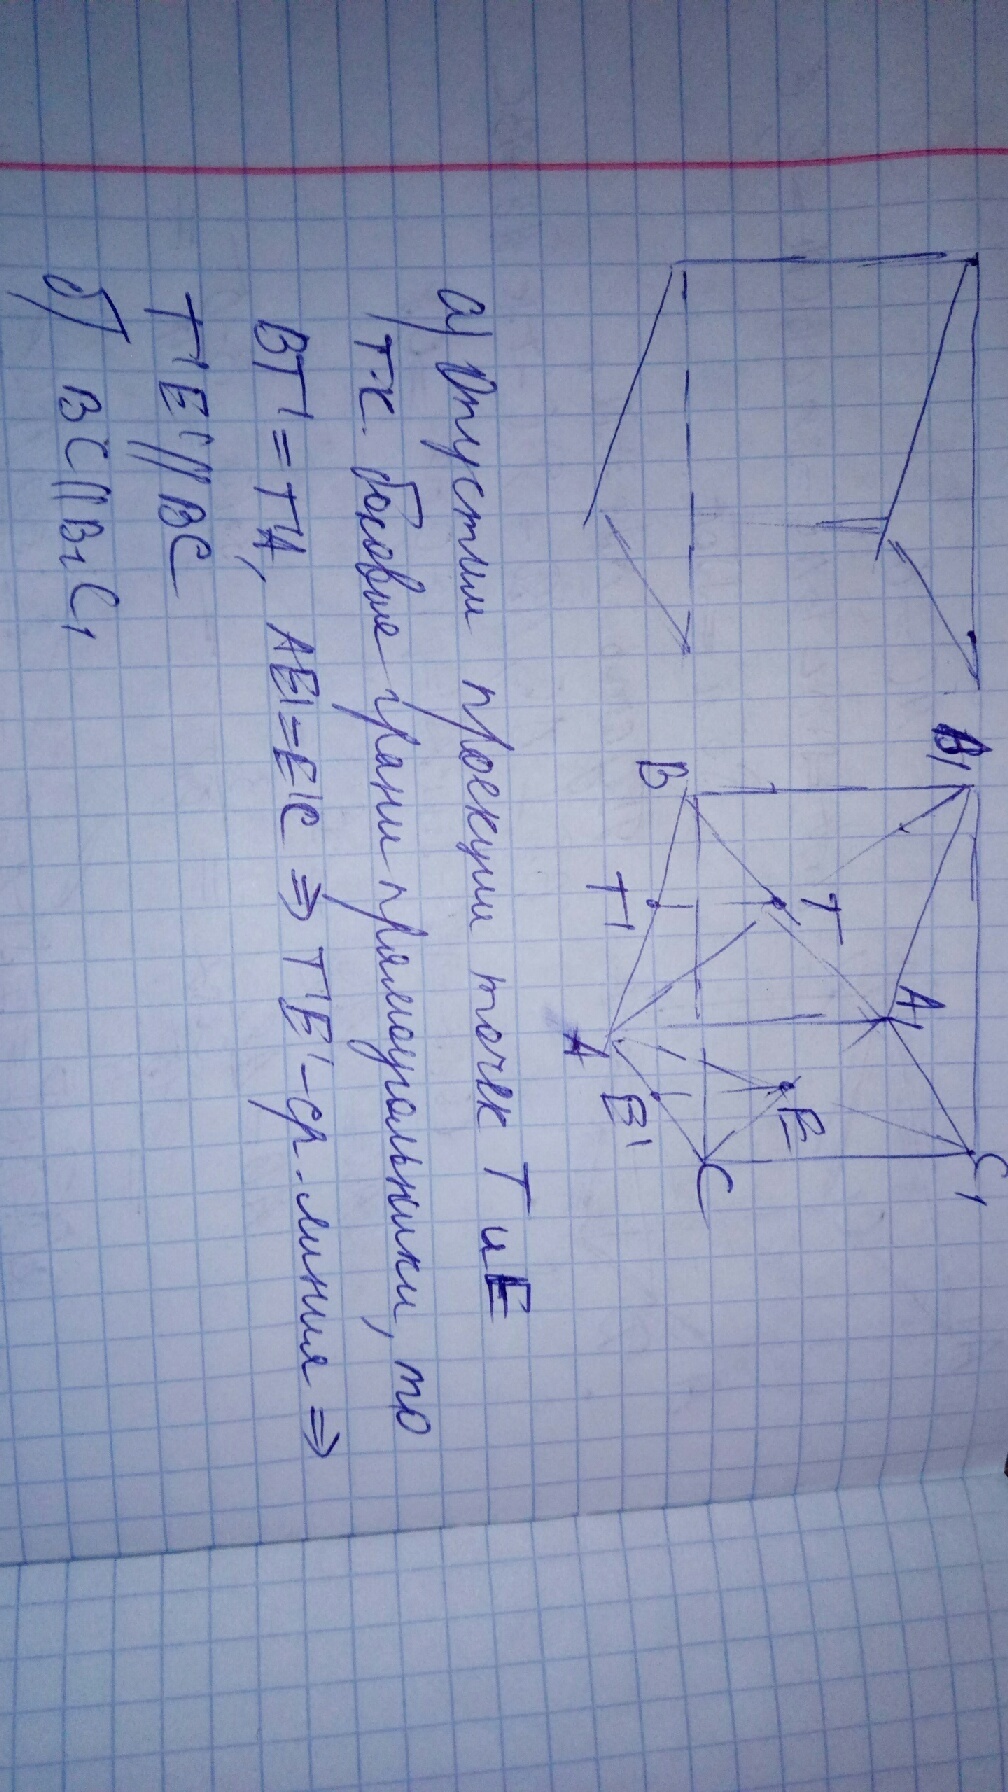 B₁ C₁
A₁
T E
B C
T' E'
A
а) Опустим проекции точек T и E
т.к. боковые грани прямоугольники, то
BT' = T'A, AE' = E'C ⇒ T'E' - ср. линия ⇒
T'E' // BC
б) BC // B₁C₁